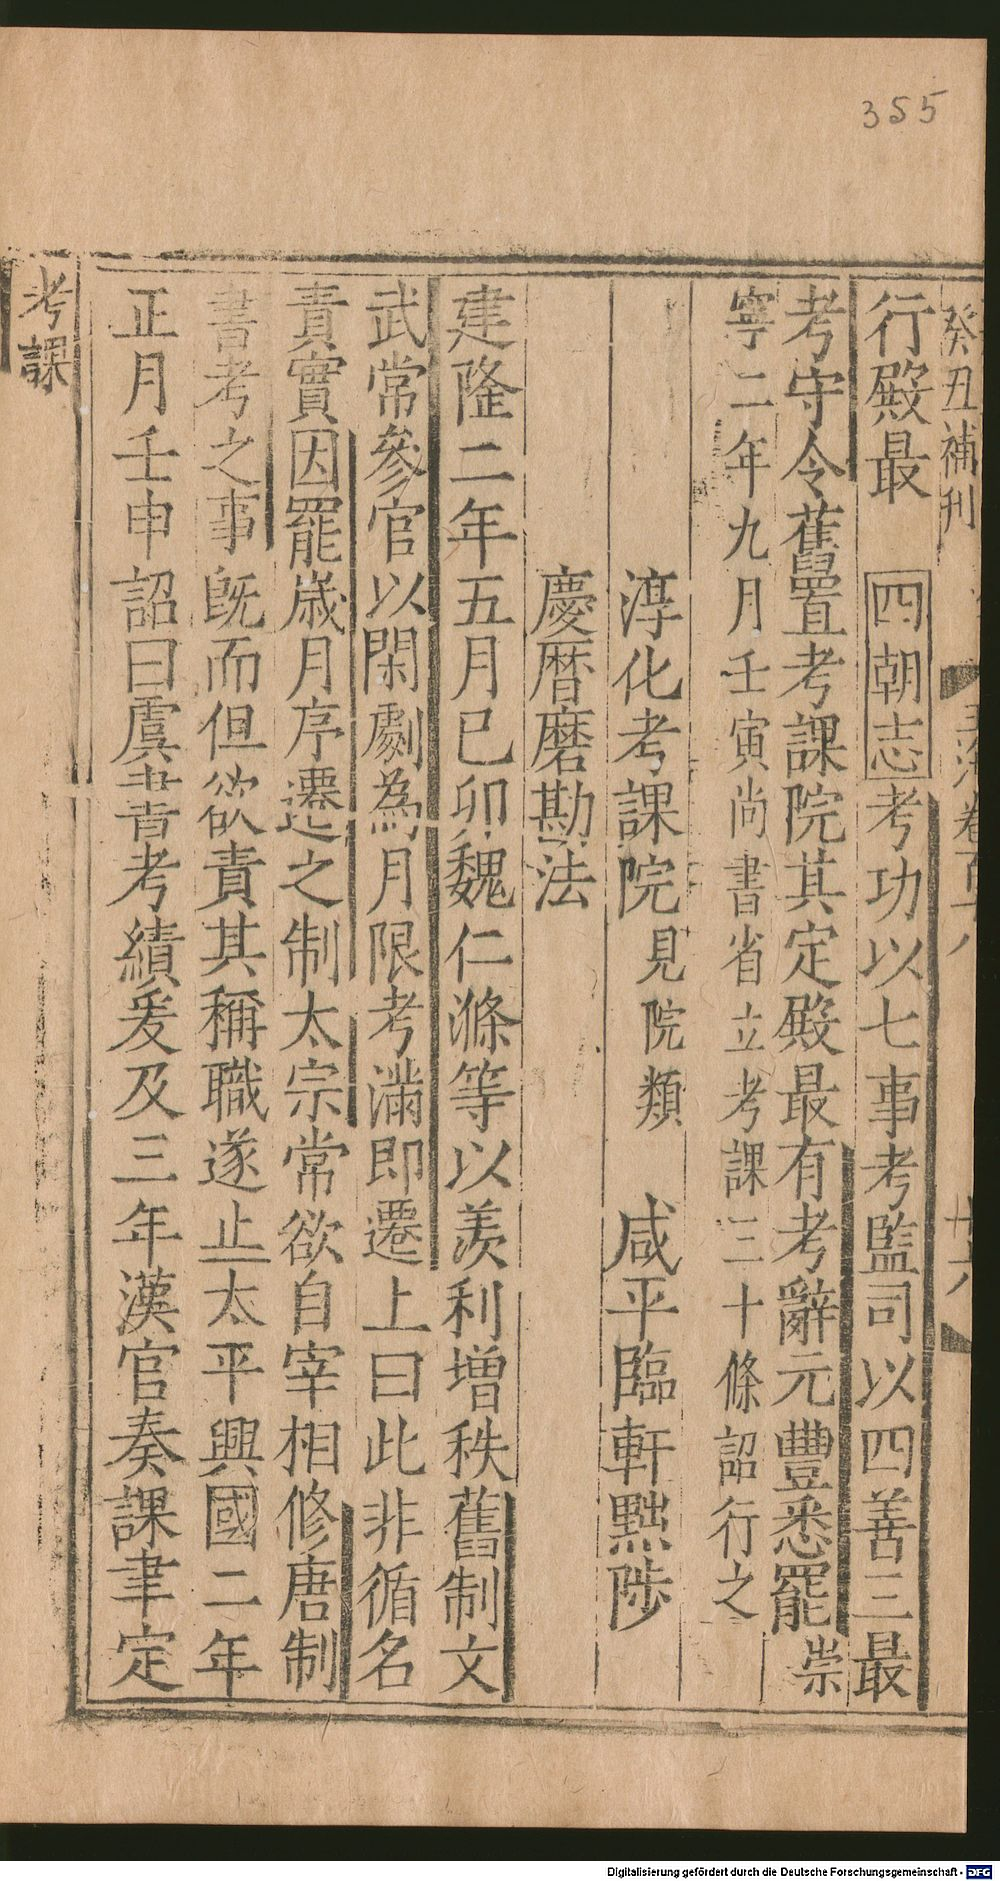 355
癸丑補刊 玉海卷百十八 廿六
行殿最 四朝志考功以七事考監司以四善三最
考守令舊置考課院其定殿最有考辭元豐悉罷崇
寧二年九月壬寅尚書省立考課三十條詔行之
淳化考課院見院類 咸平臨軒黜陟
慶曆磨勘法
建隆二年五月已卯魏仁滌等以羨利增秩舊制文
武常參官以閑劇為月限考滿即遷上曰此非循名
責實因罷歲月序遷之制太宗常欲自宰相修唐制
書考之事旣而但欲責其稱職遂止太平興國二年
正月壬申詔曰虞書考績爰及三年漢官奏課聿定
考課
Digitalisierung gefördert durch die Deutsche Forschungsgemeinschaft - DFG